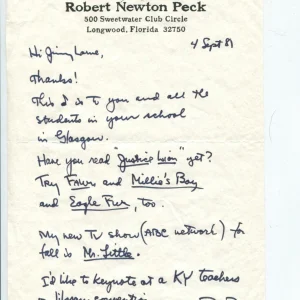 Robert Newton Peck
500 Sweetwater Club Circle
Longwood, Florida 32750
4 Sept 81
Hi Jimmy
Thanks!
This is to you and all the
students in your school
in Glasgow.
Have you read "Justice Lion" yet?
Try Fawn and Millie's Boy
and Eagle Fur, too.
My new TV show (ABC network) for
fall is Mr. Little.
I'd like to keynote at a KY teachers
library convention